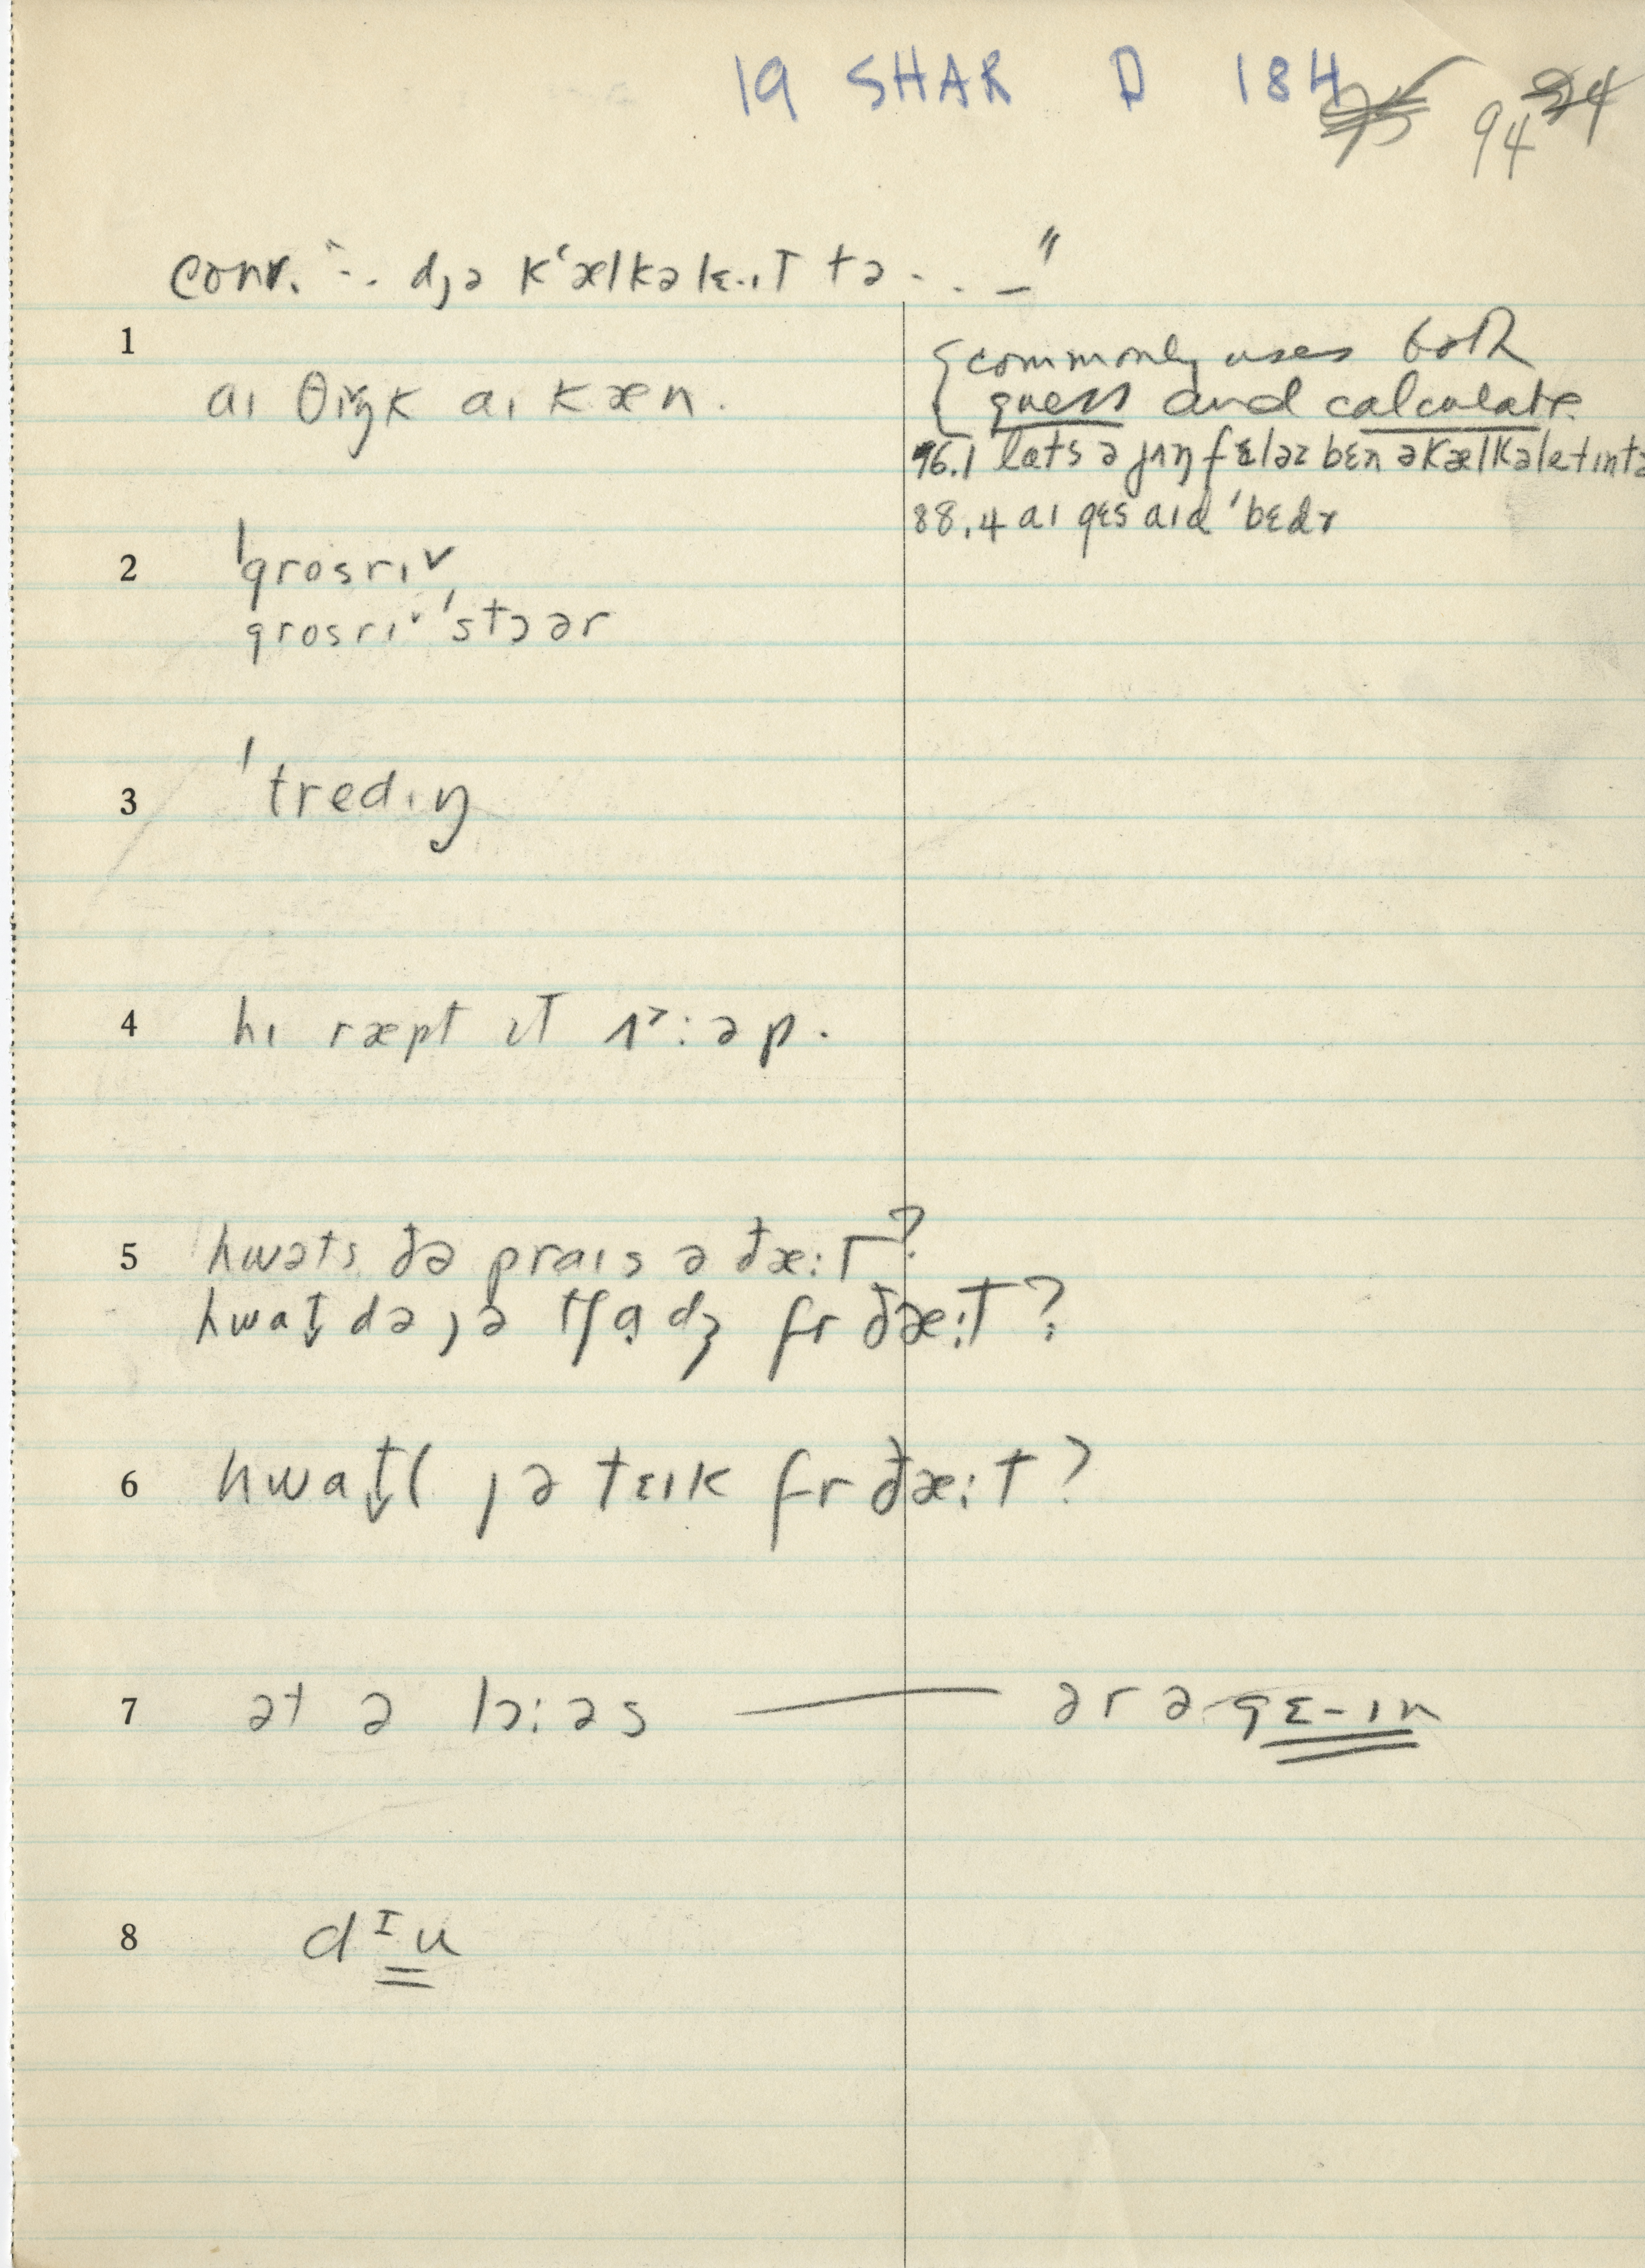 19 SHAR D 184 94
conv. "-. dȷə k‘ælkəlɛ.ɪT tə . . –"
1
aɪ θɪ˅ŋk aɪ kæn.
{commonly uses both
guess and calculate.
96.1 læts ə jʌŋ fɛləz bɛn əkælkəletɪntə
88.4 aɪ gɛs aɪd 'bɛdɚ
2 'grosrɪ˅
grosrɪ˅ 'stɔər
3 'tredɪŋ
4 hɪ ræpt ɪT ʌ˃:əp.
5 hwəts ðə praɪs ə ðæ:T?
hwat̬ də ȷə tʃɑdʒ fr ðæ:T?
6 hwat̬l ȷə tɛɪk fr ðæ:t?
7 ət ə lɔ:əs — ər ə gɛ-ɪn
8 dᴵu